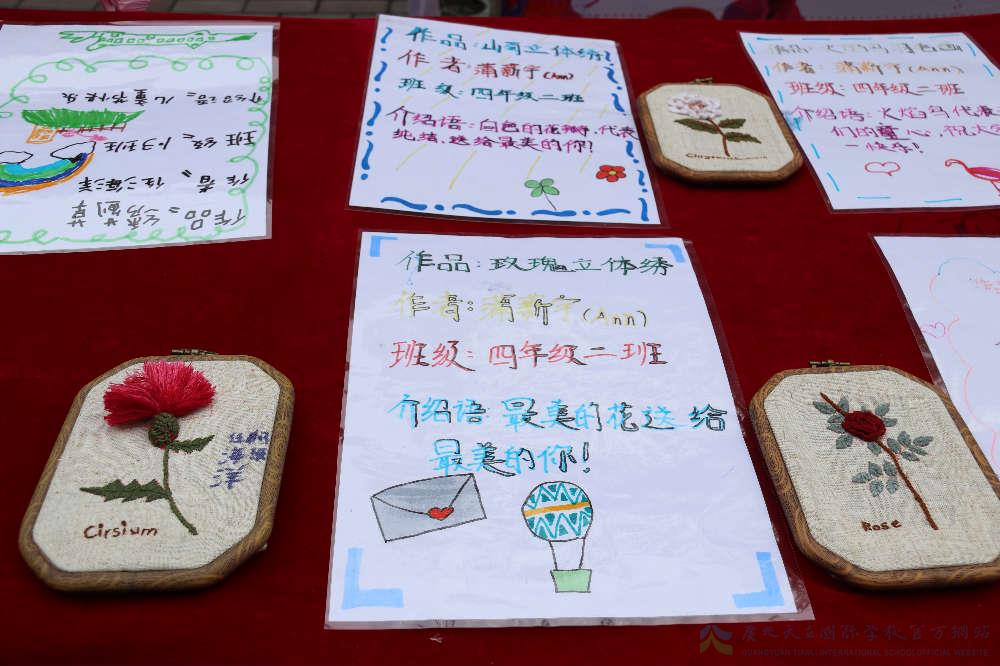 作品:山哥立体绣
作者:蒲新宇(Ann)
班级:四年级二班
介绍语:白色的花瓣,代表
纯结,送给最美的你!
作者:蒲新宇(Ann)
班级:四年级二班
介绍语:火焰鸟代表
们的童心,祝大
一快乐!
介绍语:儿童节快乐
班级:
作者:任
作品:绣剑草
作品:玫瑰立体绣
作者:蒲新宇(Ann)
班级:四年级二班
介绍语:最美的花送给
最美的你!
Cirsium
Rose
广元天立国际学校官方网站
GUANGYUAN TIANLI INTERNATIONAL SCHOOL OFFICIAL WEBSITE